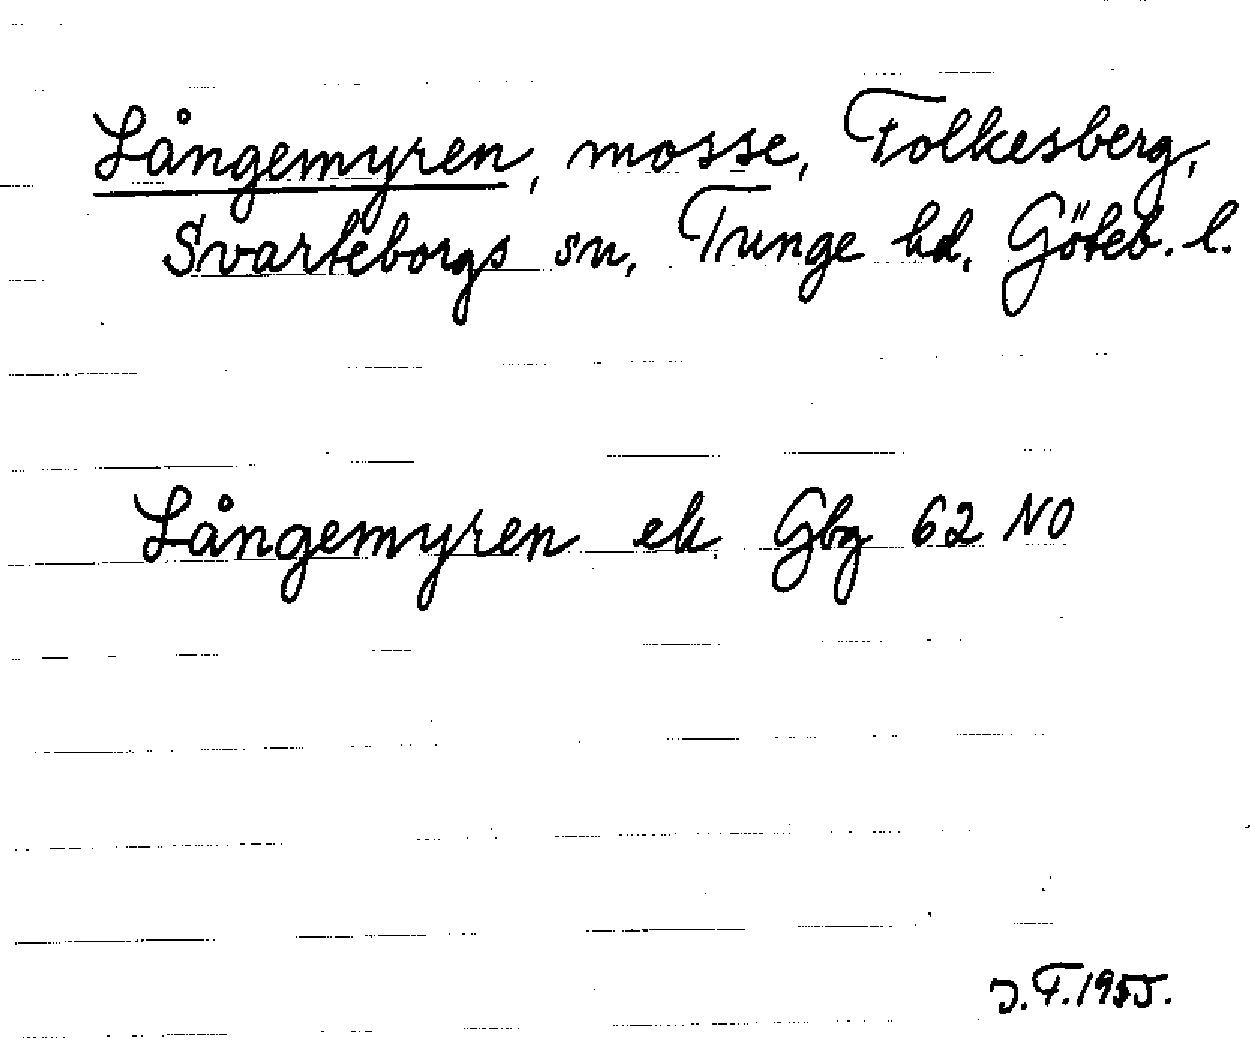 Långemyren, mosse, Folkesberg,
Svarteborgs sn, Tunge hd, Göteb. l.
Långemyren ek Gbg 62 NO
J.F. 1955.